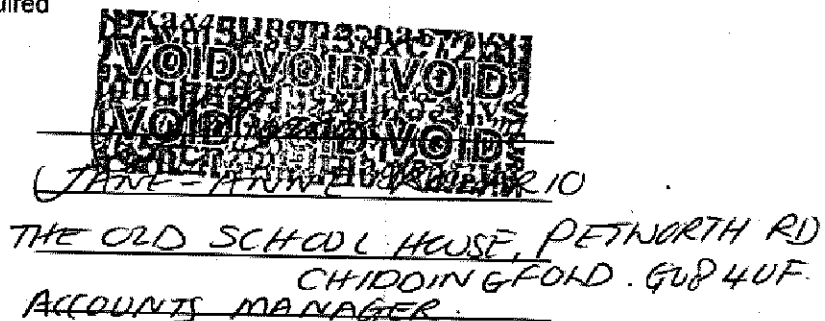 uired
VOID VOID VOID
VOID VOID
JANE-ANNE
THE OLD SCHOOL HOUSE, PETWORTH RD
CHIDDINGFOLD. GU8 4UF.
ACCOUNTS MANAGER.